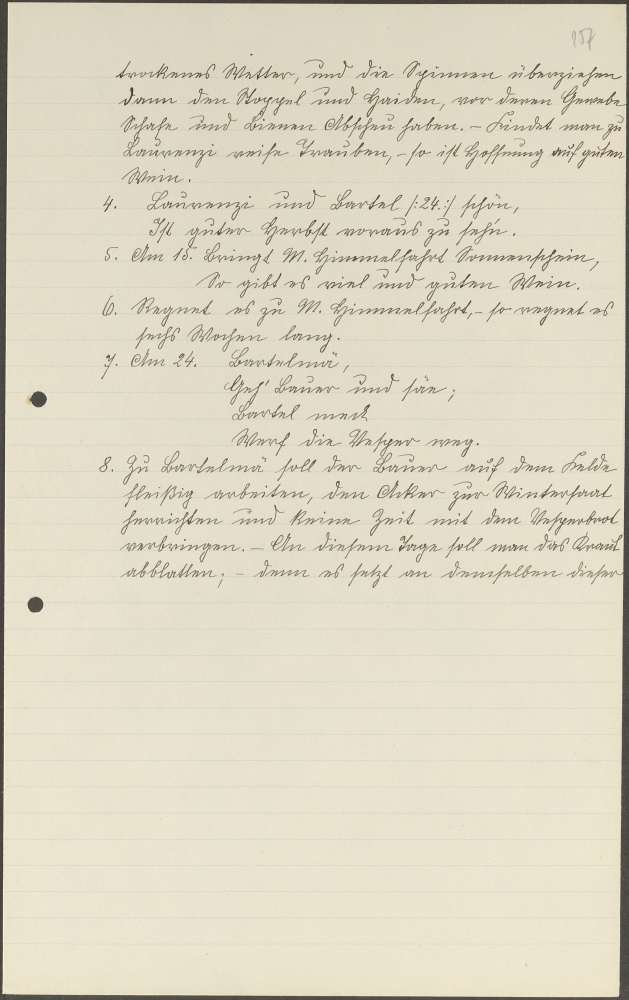 157
trockenes Wetter, und die Spinnen überziehen
dann den Stoppel und Haiden, vor deren Gewebe
Schafe und Bienen Abscheu haben. – Findet man zu
Laurenzi reife Trauben, – so ist Hoffnung auf guten
Wein.
4. Laurenzi und Bartel /:24.:/ schön,
Ist guter Herbst voraus zu seh'n.
5. Am 15. Bringt M. Himmelfahrt Sonnenschein,
So gibt es viel und guten Wein.
6. Regnet es zu M. Himmelfahrt, – so regnet es
sechs Wochen lang.
7. Am 24. Bartelmä,
Geh' Bauer und säe;
Bartel meck
Werf die Vesper weg.
8. Zu Bartelmä soll der Bauer auf dem Felde
fleißig arbeiten, den Acker zur Wintersaat
herrichten und keine Zeit mit dem Vesperbrot
verbringen. – An diesem Tage soll man das Kraut
abblatten; – denn es setzt an demselben dieser